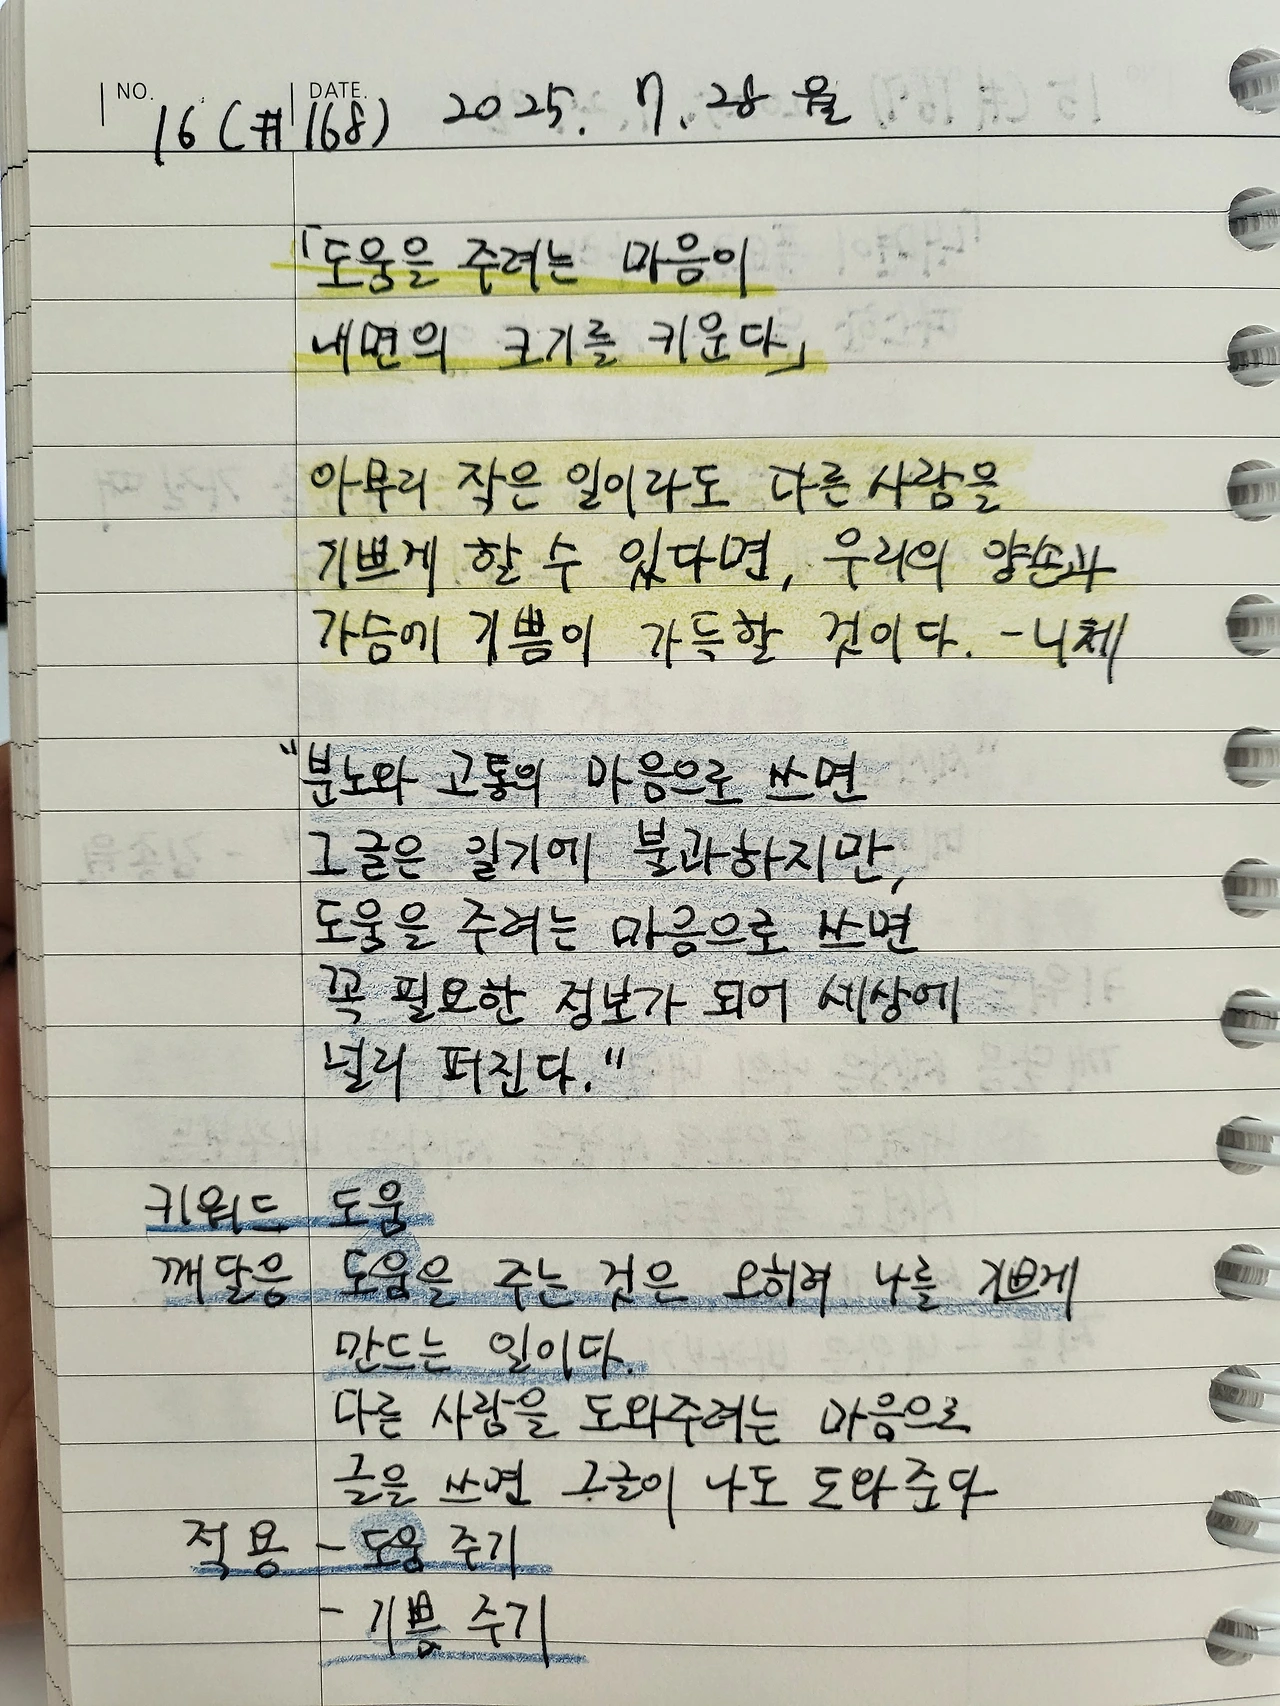 NO. DATE.
16 (#168) 2025. 7. 28 월
「도움을 주려는 마음이
내면의 크기를 키운다」
아무리 작은 일이라도 다른 사람을
기쁘게 할 수 있다면, 우리의 양손과
가슴에 기쁨이 가득할 것이다. -니체
"분노와 고통의 마음으로 쓰면
그 글은 일기에 불과하지만,
도움을 주려는 마음으로 쓰면
꼭 필요한 정보가 되어 세상에
널리 퍼진다."
키워드 도움
깨달음 도움을 주는 것은 오히려 나를 기쁘게
만드는 일이다.
다른 사람을 도와주려는 마음으로
글을 쓰면 그 글이 나도 도와준다
적용 - 도움 주기
- 기쁨 주기